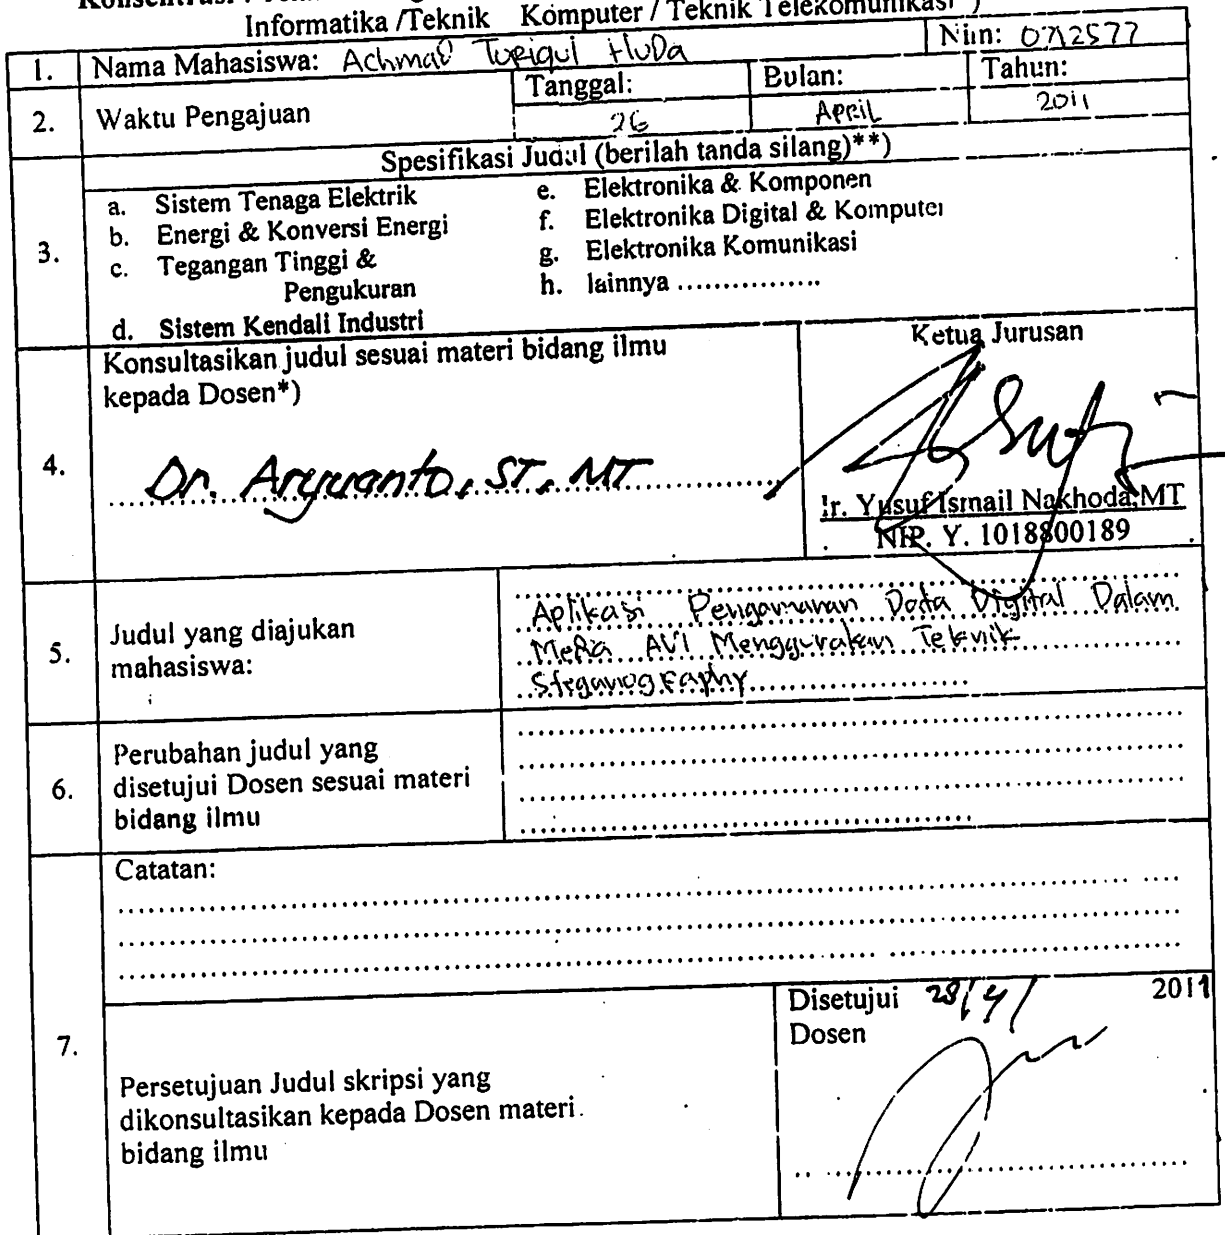 Informatika /Teknik Komputer / Teknik Telekomunikasi *)
1. Nama Mahasiswa: Achmad Turiqul HuDa Nim: 0712577
2. Waktu Pengajuan Tanggal: Bulan: Tahun:
26 April 2011
Spesifikasi Judul (berilah tanda silang)**)
3.
a. Sistem Tenaga Elektrik
b. Energi & Konversi Energi
c. Tegangan Tinggi &
Pengukuran
d. Sistem Kendali Industri
e. Elektronika & Komponen
f. Elektronika Digital & Komputer
g. Elektronika Komunikasi
h. lainnya ................
4. Konsultasikan judul sesuai materi bidang ilmu
kepada Dosen*)
Dr. Aryuanto, ST, MT
Ketua Jurusan
Ir. Yusuf Ismail Nakhoda, MT
NIP. Y. 1018800189
5. Judul yang diajukan
mahasiswa:
Aplikasi Pengamanan Data Digital Dalam
Media AVI Menggunakan Teknik
Steganography
6. Perubahan judul yang
disetujui Dosen sesuai materi
bidang ilmu
7. Catatan:
Persetujuan Judul skripsi yang
dikonsultasikan kepada Dosen materi
bidang ilmu
Disetujui 28/4/ 2011
Dosen